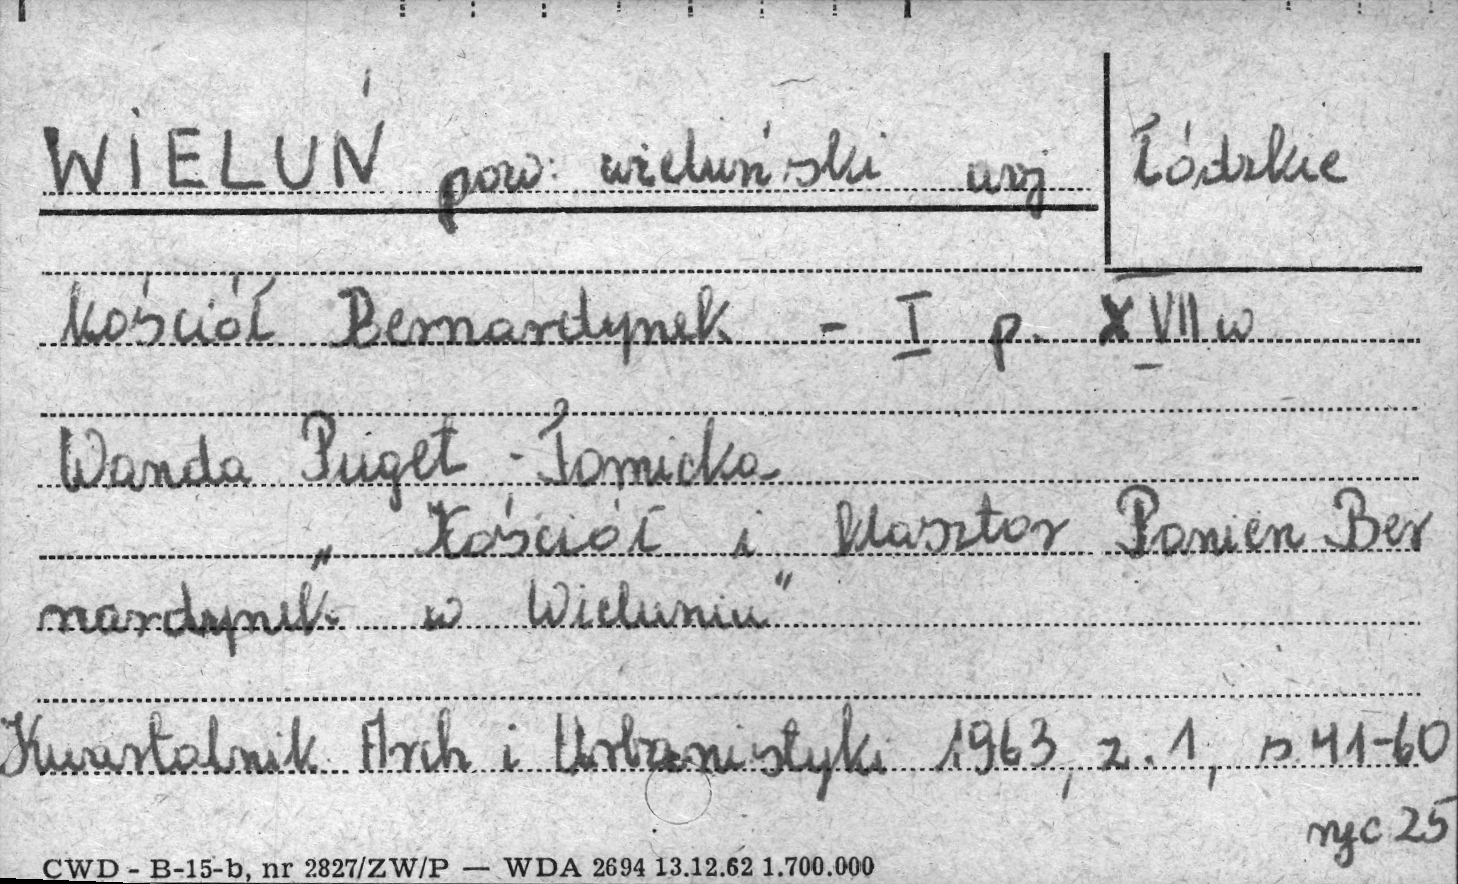 WIELUŃ pow. wieluński woj Łódzkie
Kościół Bernardynek - I p. XVII w
Wanda Puget - Łomicka
„ Kościół i klasztor Panien Ber
nardynek w Wieluniu"
Kwartalnik Arch i Urbanistyki 1963, z. 1, s 41-60
ryc 25
CWD - B-15-b, nr 2827/ZW/P — WDA 2694 13.12.62 1.700.000